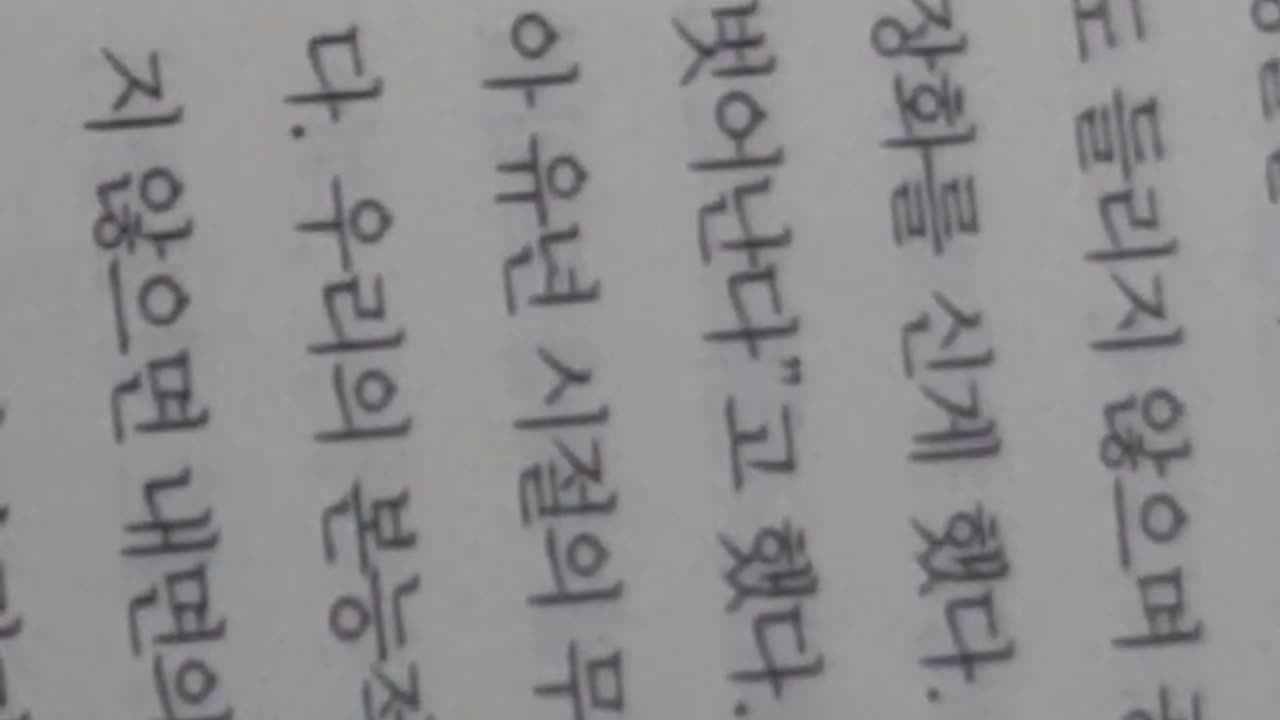 도 들리지 않으며
장화를 신게 했다.
벗어난다"고 했다.
아 유년 시절의 무
다. 우리의 본능
지 않으면 내면의